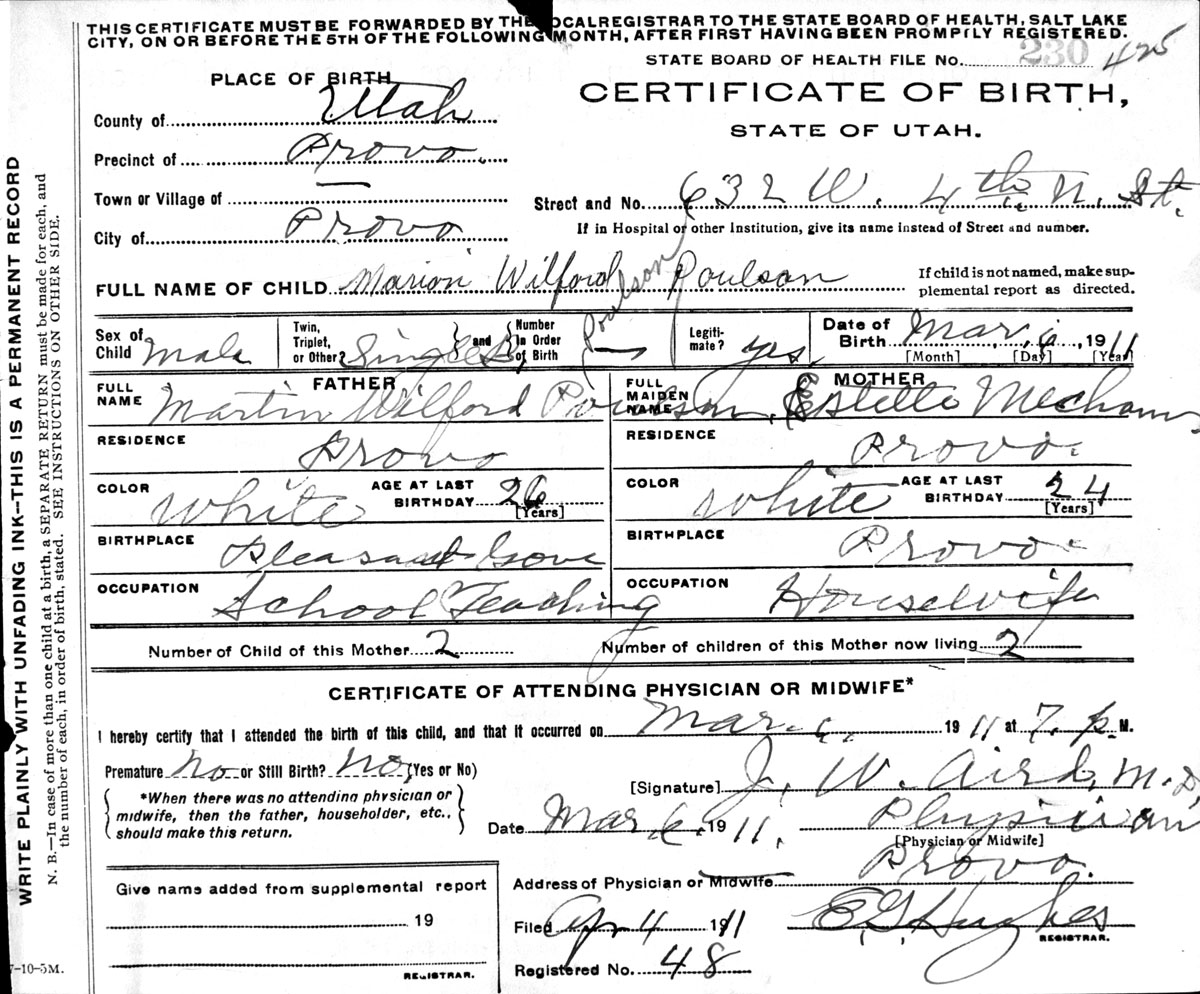 THIS CERTIFICATE MUST BE FORWARDED BY THE LOCAL REGISTRAR TO THE STATE BOARD OF HEALTH, SALT LAKE
CITY, ON OR BEFORE THE 5TH OF THE FOLLOWING MONTH, AFTER FIRST HAVING BEEN PROMPTLY REGISTERED.
STATE BOARD OF HEALTH FILE No. 230 425
PLACE OF BIRTH
CERTIFICATE OF BIRTH,
STATE OF UTAH.
County of Utah
Precinct of Provo.
Town or Village of —
City of Provo
Street and No. 632 W. 4th. N. St.
If in Hospital or other Institution, give its name instead of Street and number.
FULL NAME OF CHILD Marion Wilford Poulson
Poulson
If child is not named, make sup-
plemental report as directed.
Sex of Child Male
Twin, Triplet, or Other? Single
and Number in Order of Birth —
Legiti-mate? yes
Date of Birth Mar. 6, 1911
[Month] [Day] [Year]
FATHER
FULL NAME Martin Wilford Poulson
RESIDENCE Provo
COLOR White
AGE AT LAST BIRTHDAY 26
[Years]
BIRTHPLACE Pleasant Grove
OCCUPATION School Teaching
MOTHER
FULL MAIDEN NAME Estella Mecham
RESIDENCE Provo.
COLOR White
AGE AT LAST BIRTHDAY 24
[Years]
BIRTHPLACE Provo
OCCUPATION Housewife
Number of Child of this Mother 2
Number of children of this Mother now living 2
CERTIFICATE OF ATTENDING PHYSICIAN OR MIDWIFE*
I hereby certify that I attended the birth of this child, and that it occurred on Mar. 6. 1911 at 7. p. M.
Premature No or Still Birth? No, (Yes or No)
*When there was no attending physician or
midwife, then the father, householder, etc.,
should make this return.
[Signature] J. W. Aird, M.D.
Date Mar. 6, 1911.
Physician
[Physician or Midwife]
Address of Physician or Midwife Provo.
Give name added from supplemental report
19
REGISTRAR.
Filed Apr 4 1911
E. G. Hughes
REGISTRAR.
Registered No. 48
7-10-5M.
WRITE PLAINLY WITH UNFADING INK—THIS IS A PERMANENT RECORD
N. B.—In case of more than one child at a birth, a SEPARATE RETURN must be made for each, and
the number of each, in order of birth, stated. SEE INSTRUCTIONS ON OTHER SIDE.